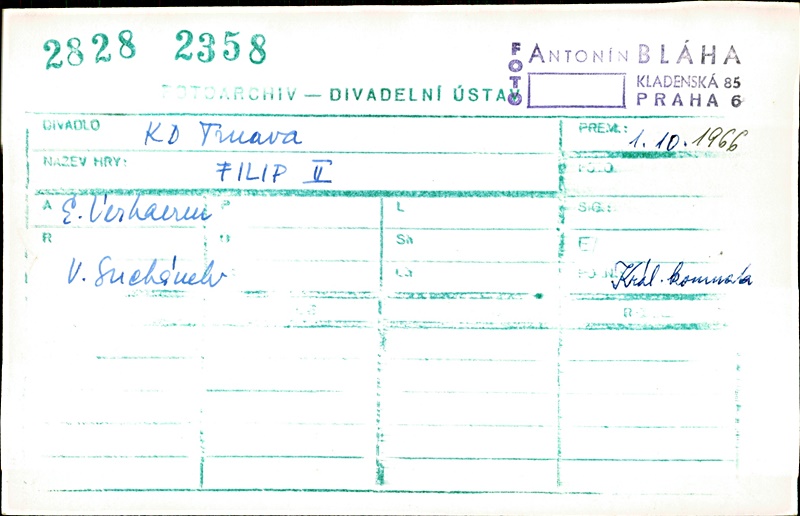 2828 2358
FOTO ANTONÍN BLÁHA
KLADENSKÁ 85
PRAHA 6
FOTOARCHIV — DIVADELNÍ ÚSTAV
DIVADLO KD Trnava PREM.: 1.10.1966
NÁZEV HRY: FILIP II FOTO:
A E. Verhaeren P L SIG.:
R H Sn E/
V. Suchánek Ch POZN. Král. komnata